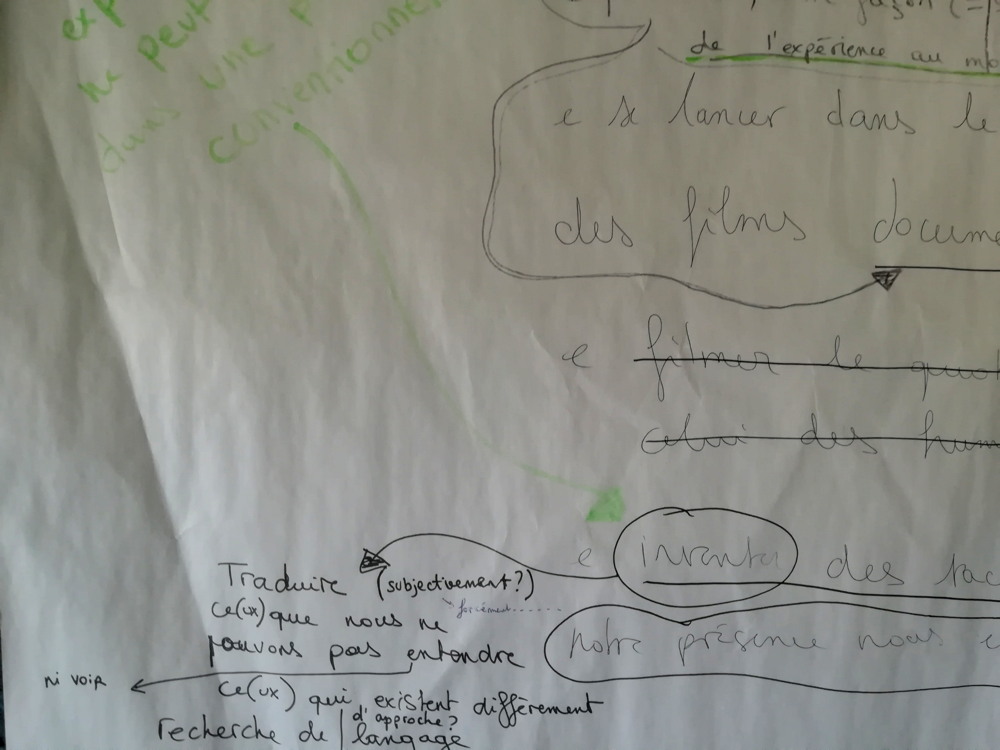 ne peut
dans une
conventionne
façon (=
de l'expérience au mo
e se lancer dans le
des films docume
e filmer le quot
celui des hum
e inventer des tac
notre présence nous e
Traduire (subjectivement?)
forcément......
ce(ux) que nous ne
pouvons pas entendre
ni voir
ce(ux) qui existent différement
d'approche?
recherche de langage